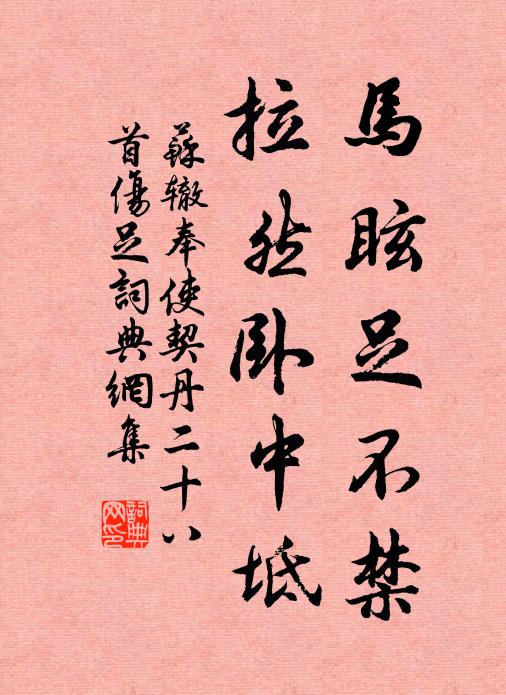 馬眩足不禁
拉然卧中坻
蘇辙奉使契丹二十八
首傷足詞典網集
詞典网印